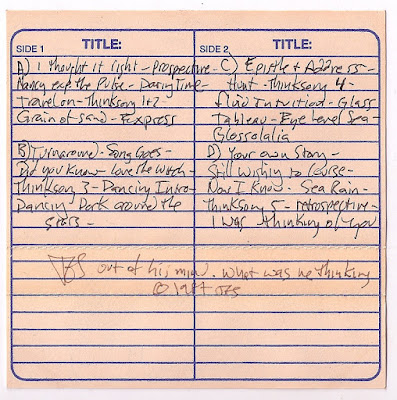 SIDE 1 TITLE:
A) I thought it right - Prospective -
Nancy ex the Pulse - Daring Time -
Travel on - Thinksong 1+2
Grain of sand - Express
B) Turnaround - Song Goes -
Did you Know - love the Watch -
Thinksong 3 - Dancing Intro -
Dancing - Dark around the
stars -
SIDE 2 TITLE:
C) Epistle & Address -
Hunt - Thinksong 4 -
fluid Intuition - Glass
Tableau - Eye Level Sea -
Glossolalia
D) Your own Story -
Still Wishing to Course -
Now I Know - Sea Rain -
Thinksong 5 - retrospective -
I was thinking of you
out of his mind. What was he thinking
© 1984